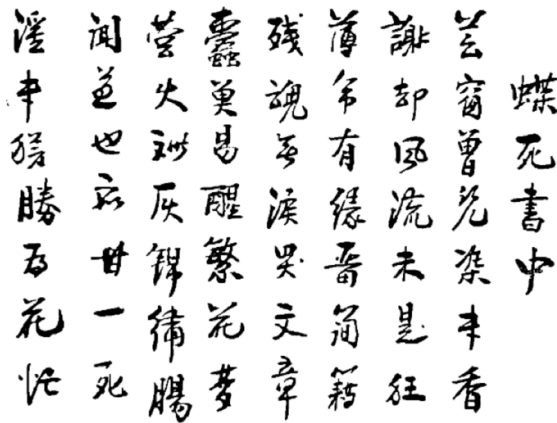 蝶死書中
芸窗曾染書香
謝却風流未是狂
薄命有緣留簡籍
殘魂無淚哭文章
蠹巢易醒繁花夢
螢火難灰錦繡腸
聞道也應甘一死
淫書勝為花忙